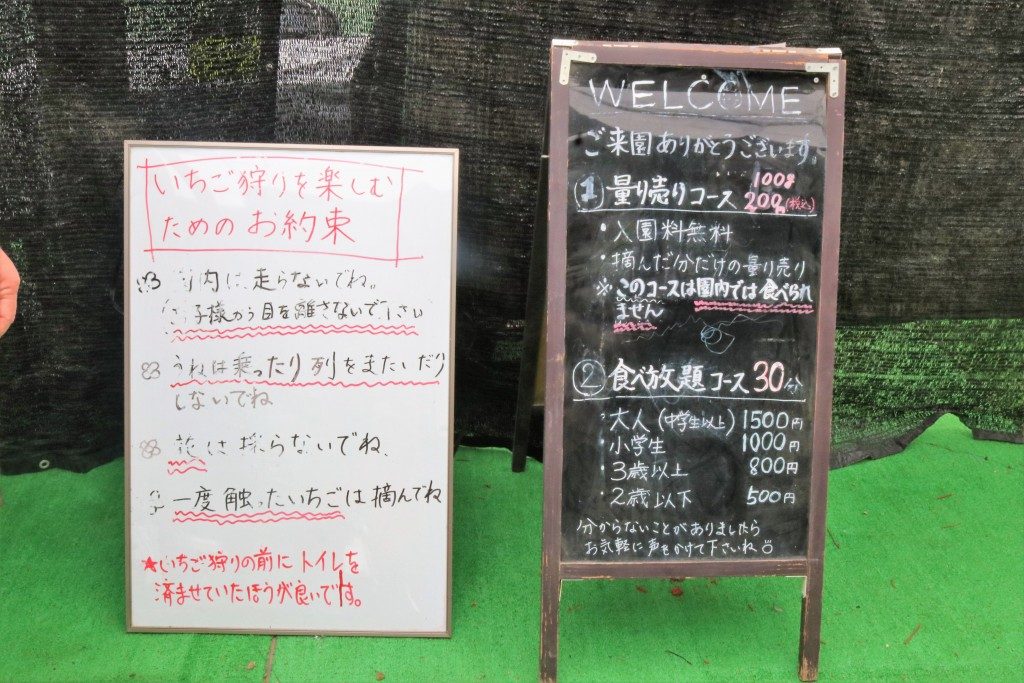 いちご狩りを楽しむ
ためのお約束
内に走らないでね。
お子様から目を離さないで下さい
うねは乗ったり列をまたいだり
しないでね
花は採らないでね、
一度触ったいちごは摘んでね
★いちご狩りの前にトイレを
済ませていたほうが良いです。
WELCOME
ご来園ありがとうございます。
① 量り売りコース 100g 200円(税込)
・入園料無料
・摘んだ分だけの量り売り
※このコースは園内では食べられ
ません
② 食べ放題コース 30分
・大人(中学生以上) 1500円
・小学生 1000円
・3歳以上 800円
・2歳以下 500円
分からないことがありましたら
お気軽に声をかけて下さいね